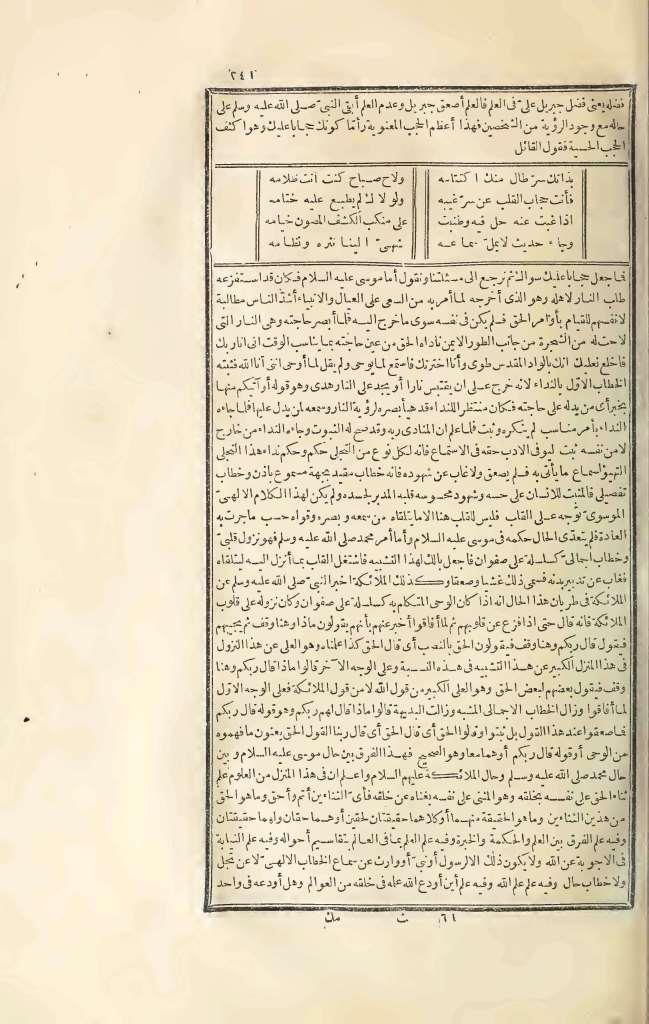 ٢٤١
فضله يعنى فضل جبريل علىّ فى العلم فالعلم أصعق جبريل وعدم العلم أبقى النبىّ صلى الله عليه وسلم على
حاله مع وجود الرؤية من الشخصين فهذا أعظم الحجب المعنوية وأما كونك حجابا عليك وهو اكثف
الحجب الحسية فقول القائل
بدا لك سرّ طال عنك اكتتامه ولاح صباح كنت أنت ظلامه
فأنت حجاب القلب عن سرّ غيبه ولولاك لم يطبع عليه ختامه
اذا غبت عنه حل فيه وطنبت على منكب الكشف المصون خيامه
وجاء حديث لا يملّ سماعه شهىّ الينا نثره ونظامه
فما جعل حجابا عليك سواك ثم نرجع الى مسئلتنا ونقول أما موسى عليه السلام فكان قد استفرغه
طلب النار لاهله وهو الذى أخرجه لما أمر به من السعى على العيال والانبياء أشدّ الناس مطالبة
لانفسهم للقيام بأوامر الحق فلم يكن فى نفسه سوى ما خرج اليه فلما أبصر حاجته وهى النار التى
لاحت له من الشجرة من جانب الطور الايمن ناداه الحق من عين حاجته بما يناسب الوقت انى انا ربك
فاخلع نعليك انك بالواد المقدس طوى وأنا اخترتك فاستمع لما يوحى ولم يقل لما أوحى اننى أنا الله فثبته
الخطاب الاوّل بالنداء لانه خرج على ان يقتبس نارا أو يجد على النار هدى وهو قوله أو آتيكم منها
بخبر أى من يدله على حاجته فكان منتظر اللنداء قد هيأ بصره لرؤية النار وسمعه لمن يدل عليها فلما جاءه
النداء بأمر مناسب لم ينكره وثبت فلما علم ان المنادى ربه وقد صح له الثبوت وجاءه النداء من خارج
لا من نفسه ثبت ليوفى الادب حقه فى الاستماع فانه لكل نوع من التجلى حكم وحكم نداء هذا التجلى
التهيؤ لسماع ما يأتى به فلم يصعق ولا غاب عن شهوده فانه خطاب مقيد بجهة مسموع باذن وخطاب
تفصيلى فالمثبت للانسان على حسه وشهود محسوسه قلبه المدبر لجسده ولم يكن لهذا الكلام الالهىّ
الموسوى توّجه على القلب فليس للقلب هنا الا ما يتلقاه من سمعه وبصره وقواه حسب ما جرت به
العادة فلم يتعدّى الحال حكمه فى موسى عليه السلام وأما أمر محمد صلى الله عليه وسلم فهو نزول قلبىّ
وخطاب اجمالىّ كسلسلة على صفوان فاجعل بالك لهذا التشبيه فاشتغل القلب بما أنزل اليه ليتلقاه
فغاب عن تدبير بدنه فسمى ذلك غشيا وصعقا وكذلك الملائكة اخبر النبىّ صلى الله عليه وسلم عن
الملائكة فى طريان هذا الحال انه اذا كان الوحى المتكلم به كسلسلة على صفوان وكان نزوله على قلوب
الملائكة فانه قال حتى اذا فزع عن قلوبهم ثم لما أفاقوا أخبر عنهم بأنهم يقولون ماذا وهنا وقف ثم يجيبهم
فيقول قال ربكم وهنا وقف فيقولون الحق بالنصب أى قال الحق كذا علمناه وهو العلى عن هذا النزول
فى هذا المنزل الكبير عن هذا التشبيه فى هذه النسبة وعلى الوجه الآخر قالوا ماذا قال ربكم وهنا
وقف فيقول بعضهم لبعض الحق وهو العلى الكبير من قول الله لا من قول الملائكة فعلى الوجه الاوّل
لما أفاقوا وزال الخطاب الاجمالى المشبه وزالت البديهة قالوا ماذا قال لهم ربكم وهو قوله قال ربكم
فما صعقوا عند هذا القول بل ثبتوا وقالوا الحق أى قال الحق أى قال ربنا القول الحق يعنون ما فهموه
من الوحى أو قوله قال ربكم أوهما معا وهو الصحيح فهذا الفرق بين حال موسى عليه السلام وبين
حال محمد صلى الله عليه وسلم وحال الملائكة عليهم السلام واعلم ان فى هذا المنزل من العلوم علم
ثناء الحق على نفسه بخلقه وهو المثنى على نفسه بغناه عن خلقه فأىّ الثناءين أتم وأحق وما هو الحق
من هذين الثناءين وما هو الحقيقة منهما أو كلاهما حقيقتان لحقين أو هما حقان وايهما حقيقتان
وفيه علم الفرق بين العلم والحكمة والخبرة وفيه علم العلم بما فى العالم بتقاسيم أحواله وفيه علم النيابة
فى الاجوبة عن الله ولا يكون ذلك الا لرسول أو نبىّ أو وارث عن سماع الخطاب الالهىّ لا عن تجلّ
ولا خطاب حال وفيه علم علم الله وفيه علم أين أودع الله علمه فى خلقه من العوالم وهل أودعه فى واحد
٦١ ت مك